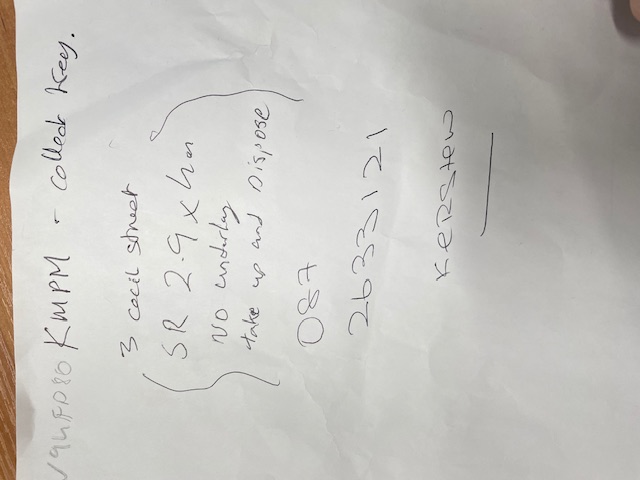 KMPM - collect key.
3 cecil street
SR 2.9 x
No underlay
take up and Dispose
087
2633121
Kersten